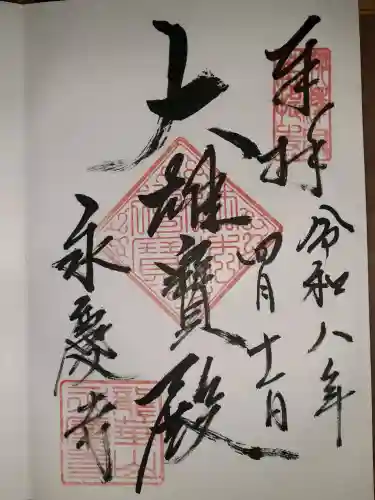 奉拝
令和八年
四月十一日
大雄寶殿
永慶寺